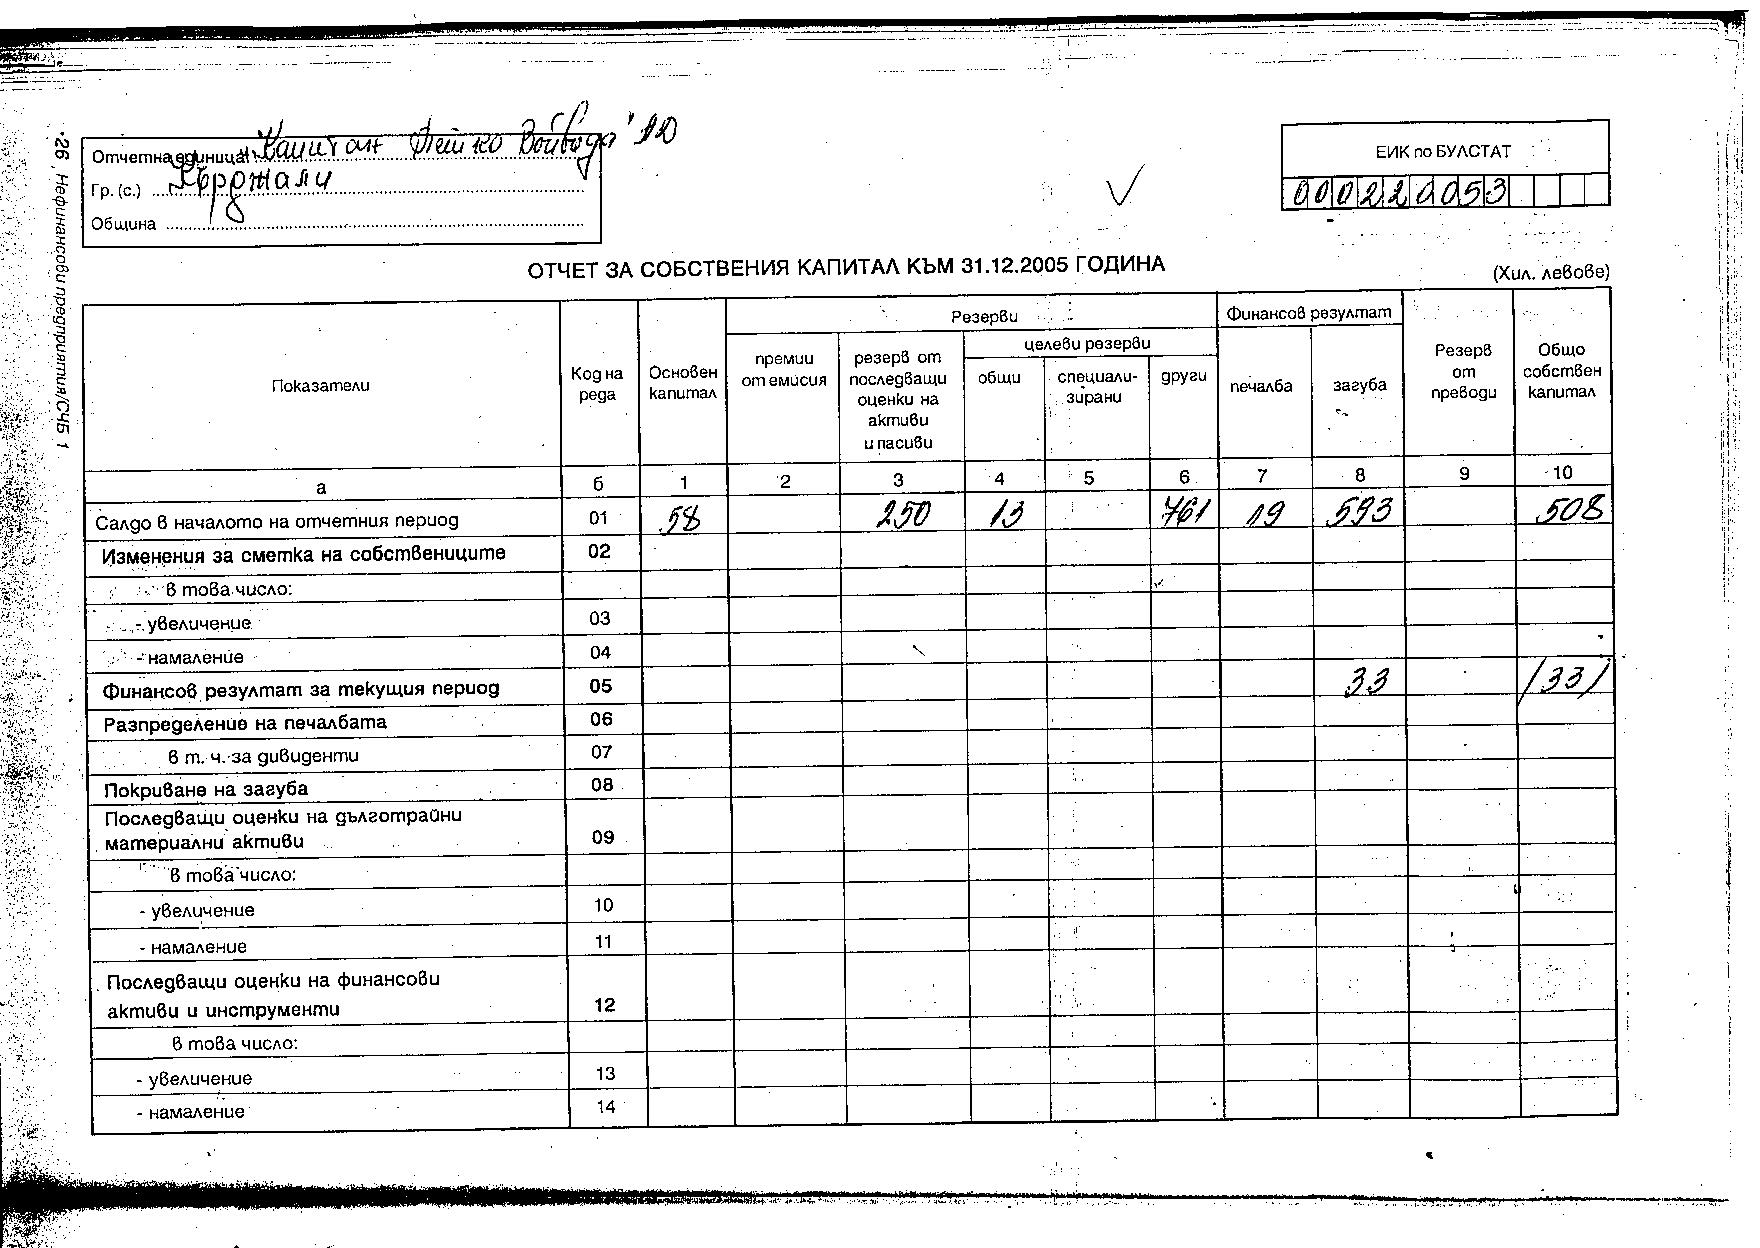 ·26 Нефинансови предприятия/СЧБ 1
Отчетна единица: "Капитан Петко Войвода" АД
Гр. (с.) Кърджали
Община
ЕИК по БУЛСТАТ
000220053
ОТЧЕТ ЗА СОБСТВЕНИЯ КАПИТАЛ КЪМ 31.12.2005 ГОДИНА
(Хил. левове)
Показатели | Код на реда | Основен капитал | Резерви | Финансов резултат | Резерв от преводи | Общо собствен капитал
премии от емисия | резерв от последващи оценки на активи и пасиви | целеви резерви | печалба | загуба
общи | специализирани | други
а | б | 1 | 2 | 3 | 4 | 5 | 6 | 7 | 8 | 9 | 10
Салдо в началото на отчетния период | 01 | 58 | | 250 | 13 | | 761 | 19 | 593 | | 508
Изменения за сметка на собствениците | 02
в това число:
- увеличение | 03
- намаление | 04
Финансов резултат за текущия период | 05 | | | | | | | | 33 | | /33/
Разпределение на печалбата | 06
в т. ч. за дивиденти | 07
Покриване на загуба | 08
Последващи оценки на дълготрайни
материални активи | 09
в това число:
- увеличение | 10
- намаление | 11
Последващи оценки на финансови
активи и инструменти | 12
в това число:
- увеличение | 13
- намаление | 14